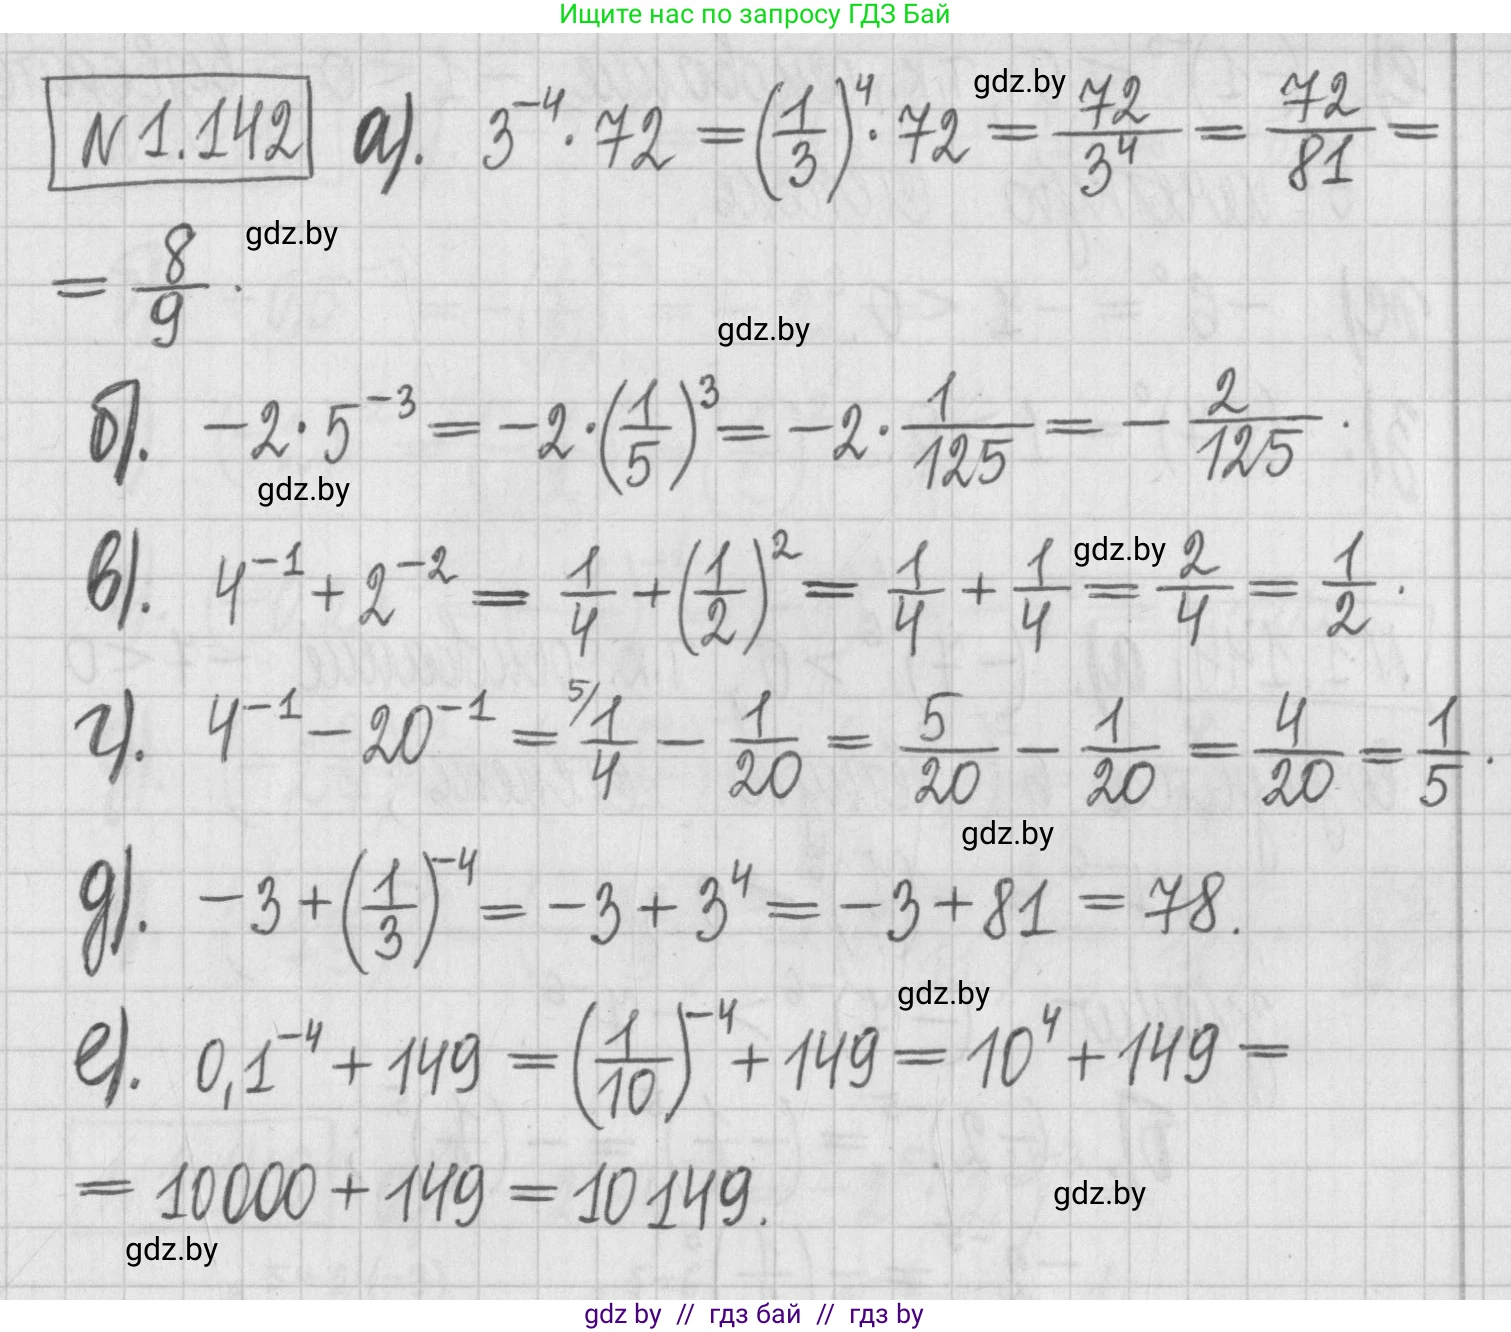 Ищите нас по запросу ГДЗ Бай
N 1.142 а). 3^{-4} · 72 = (1/3)^4 · 72 = 72/3^4 = 72/81 =
gdz.by
= 8/9 .
gdz.by
gdz.by
б). -2 · 5^{-3} = -2 · (1/5)^3 = -2 · 1/125 = - 2/125 .
gdz.by
в). 4^{-1} + 2^{-2} = 1/4 + (1/2)^2 = 1/4 + 1/4 = 2/4 = 1/2 .
gdz.by
г). 4^{-1} - 20^{-1} = 5/ 1/4 - 1/20 = 5/20 - 1/20 = 4/20 = 1/5 .
gdz.by
д). -3 + (1/3)^{-4} = -3 + 3^4 = -3 + 81 = 78.
gdz.by
е). 0,1^{-4} + 149 = (1/10)^{-4} + 149 = 10^4 + 149 =
= 10000 + 149 = 10149.
gdz.by
gdz.by
gdz by // гдз бай // гдз by